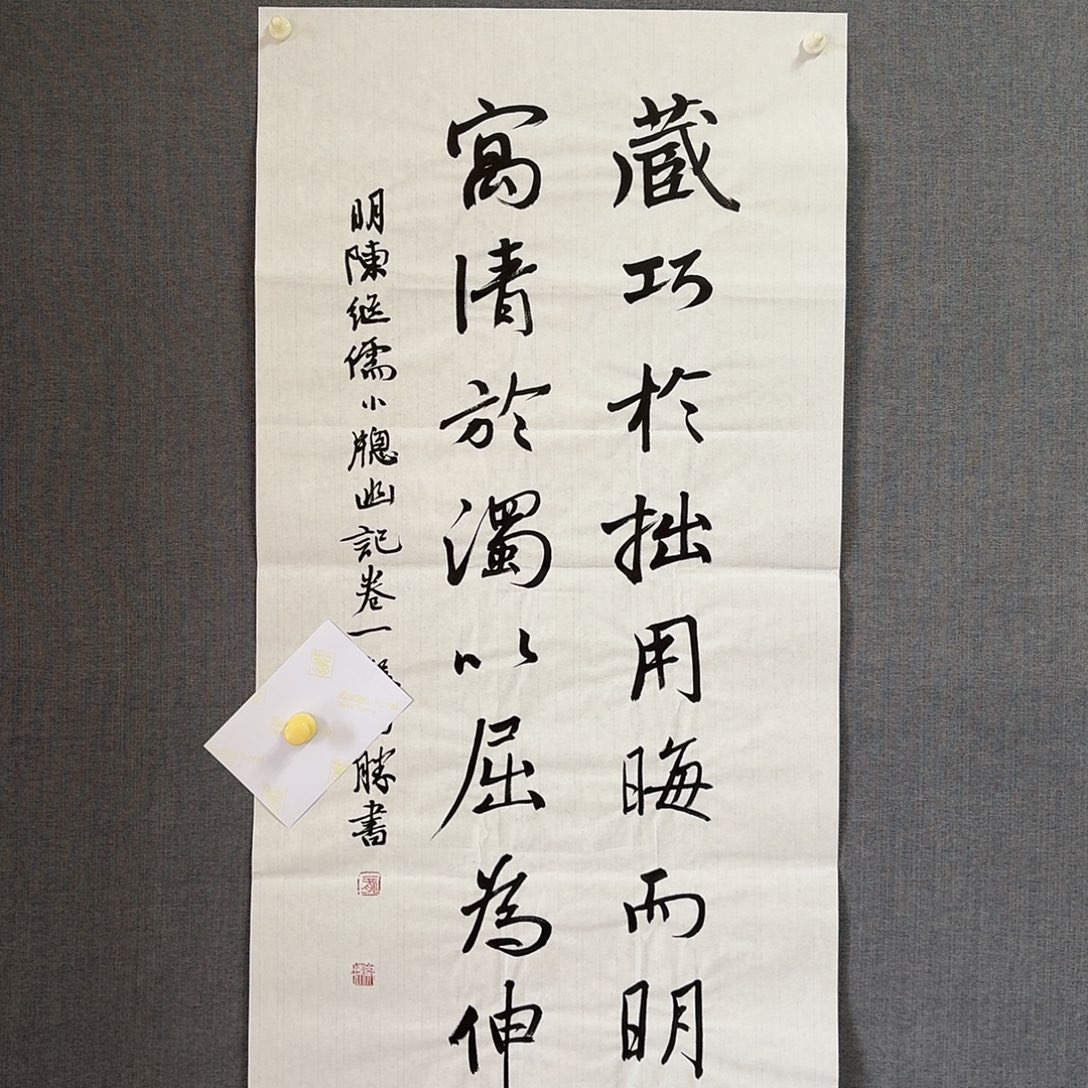 蔵巧於拙用晦而明
寓清於濁以屈為伸
明陳継儒小牎幽記卷一勝書